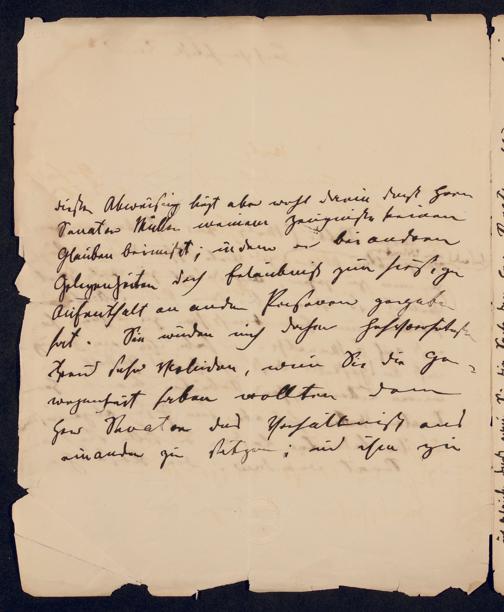 dieser Abweisung liegt aber wohl darin daß Herr
Senator Müller meinem Zeugnisse keinen
Glauben beimißt; indem er bei anderen
Gelegenheiten doch Erlaubniß zum hiesigen
Aufenthalt an andere Personen gegeben
hat. Sie würden mich daher
sehr, wenn Sie die Ge-
wogenheit haben wollten dem
Herr Senator das Verhältniß aus
einander zu setzen; und ihm zu